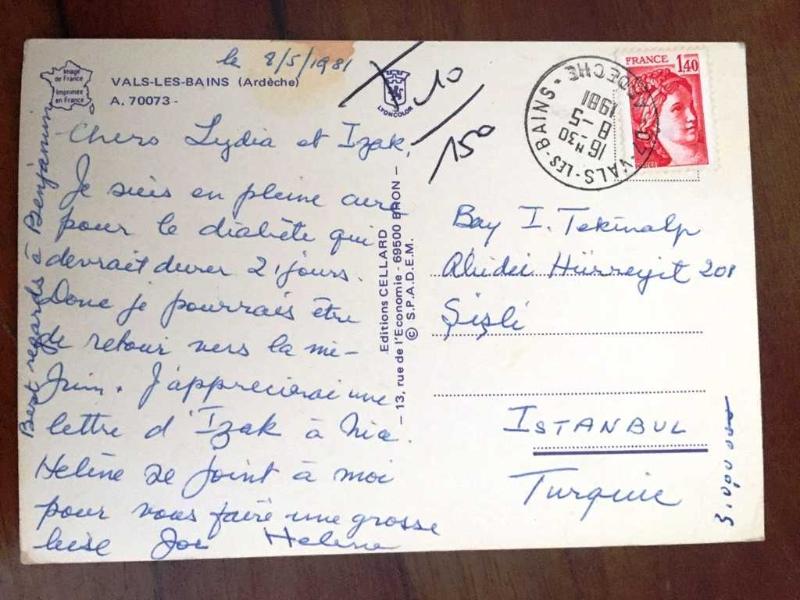 Image
de France
Imprimée
en France
VALS-LES-BAINS (Ardèche)
A. 70073 -
LYONCOLOR
le 8/5/1981
10
150
Chers Lydia et Izak,
Je suis en pleine cure
pour le diabète qui
devrait durer 21 jours.
Donc je pourrais être
de retour vers la mi-
Juin. J'apprecierai une
lettre d'Izak à Nia.
Helène se joint à moi
pour vous faire une grosse
bise Joe Helene
Best regards à Benjamin
Editions CELLARD
- 13, rue de l'Economie - 69500 BRON -
© S.P.A.D.E.M.
VALS-LES-BAINS - 07 ARDECHE
16 H 30
8-5
1981
FRANCE
1,40
Bay I. Tekinalp
Abidei Hürreyit 208
Şişli
ISTANBUL
Turquie
3.000.000